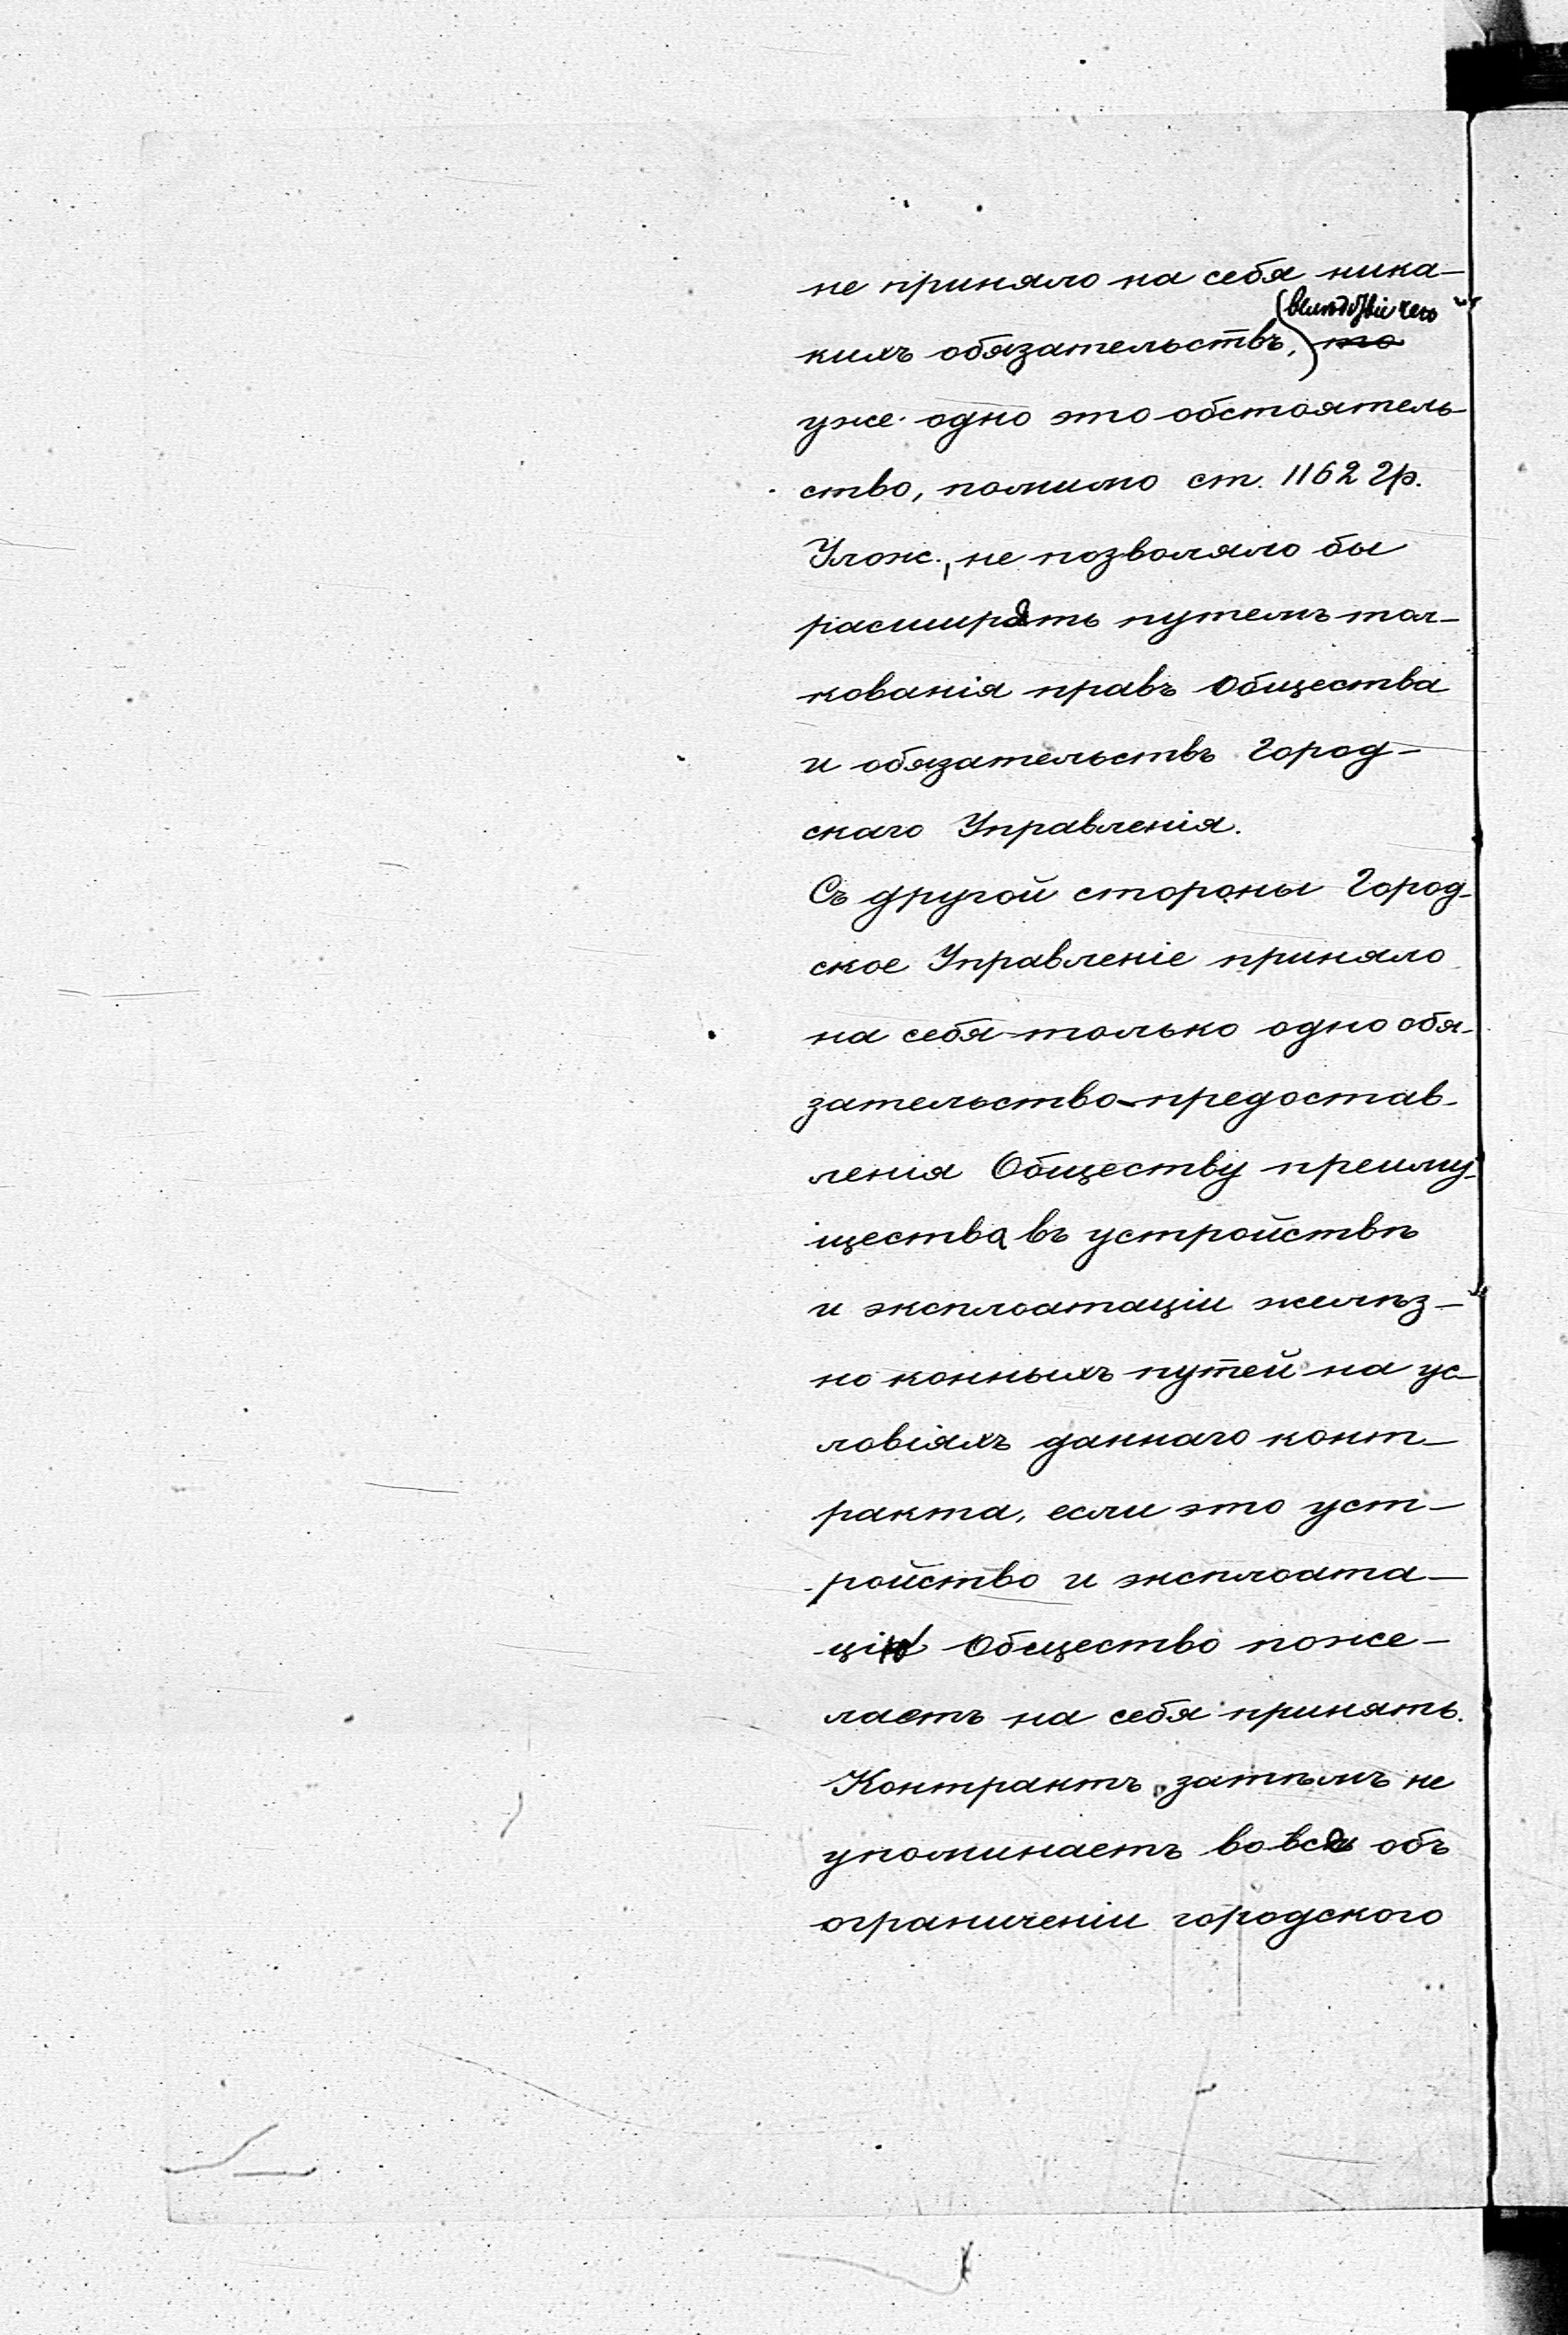 не приняло на себя ника-
вслѣдствіе чего
кихъ обязательствъ, то
уже одно это обстоятель
ство, помимо ст. 1162 Гр.
Улож., не позволяло бы
расширять путемъ тол-
кованія правъ Общества
и обязательствъ Город-
скаго Управленія.
Съ другой стороны Город-
ское Управленіе приняло
на себя только одно обя-
зательство-предостав-
ленія Обществу преиму-
щества въ устройствѣ
и эксплоатаціи желѣз-
но конныхъ путей на ус-
ловіяхъ даннаго конт-
ракта, если это уст-
ройство и эксплоата-
цію Общество поже-
лаетъ на себя принять.
Контрактъ затѣмъ не
упоминаетъ вовсе объ
ограниченіи городского